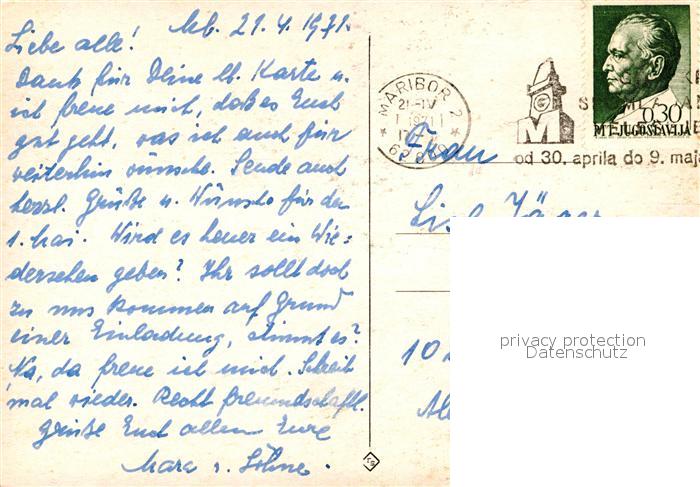 Mb. 21. 4. 1971.
Liebe alle!
Dank für Deine lb. Karte u.
ich freue mich, daß es Euch
gut geht, was ich auch für
weiterhin wünsche. Sende auch
herzl. Grüße u. Wünsche für den
1. Mai. Wird es heuer ein Wie=
dersehen geben? Ihr sollt doch
zu uns kommen auf Grund
einer Einladung, stimmt es?
Na, da freue ich mich. Schreib
mal wieder. Recht freundschaftl.
grüße Euch allen Eure
Mara u. Söhne.
MARIBOR 2
21-IV
1971
M
0,30
JUGOSLAVIJA
od 30. aprila do 9. maja
Frau
10
privacy protection
Datenschutz